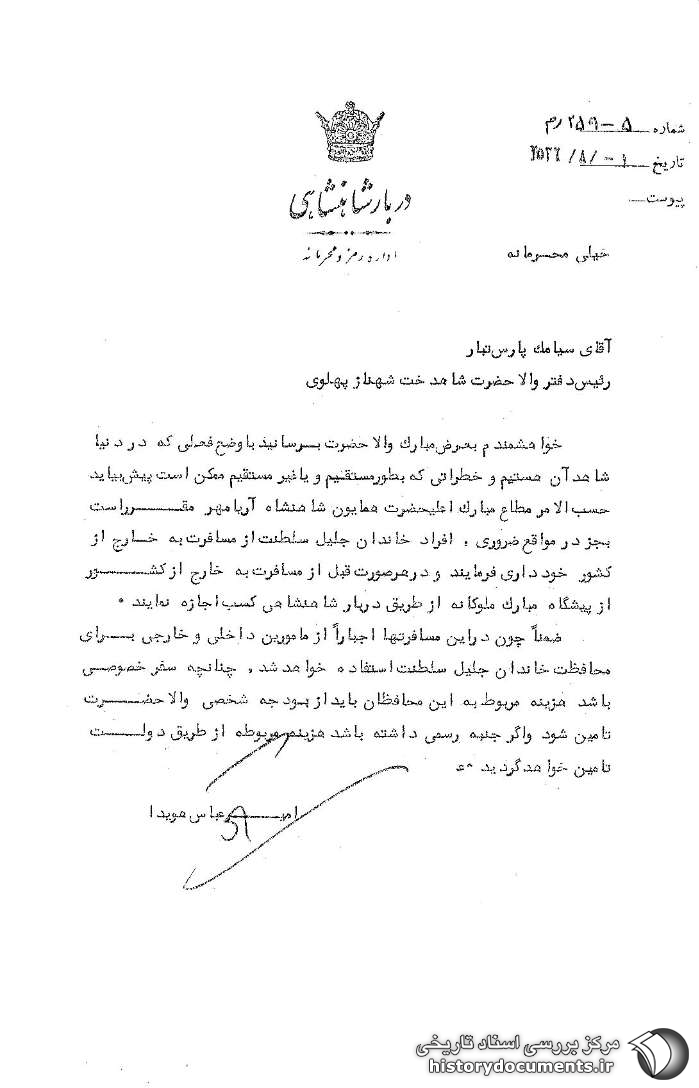 شماره ۵-۲۵۹ رم
تاریخ ۲۵۳۶/۸/۰۱
پیوست
دربار شاهنشاهی
اداره رمز و محرمانه
خیلی محسرمانه
آقای سیامك پارس‌تبار
رئیس دفتر والاحضرت شاهدخت شهناز پهلوی
خواهشمندم بعرض مبارك والاحضرت بسرسانید با وضع فعلی که در دنیا
شاهد آن هستیم و خطراتی که بطور مستقیم و یا غیر مستقیم ممکن است پیش بیاید
حسب الامر مطاع مبارك اعلیحضرت همایون شاهنشاه آریامهر مقرر است
بجز در مواقع ضروری ، افراد خاندان جلیل سلطنت از مسافرت به خارج از
کشور خودداری فرمایند و در هر صورت قبل از مسافرت به خارج از کشور
از پیشگاه مبارك ملوکانه از طریق دربار شاهنشاهی کسب اجازه نمایند ۰
ضمناً چون در این مسافرتها اجباراً از مامورین داخلی و خارجی برای
محافظت خاندان جلیل سلطنت استفاده خواهد شد ، چنانچه سفر خصوصی
باشد هزینه مربوط به این محافظان باید از بودجه شخصی والاحضرت
تامین شود و اگر جنبه رسمی داشته باشد هزینه مربوطه از طریق دولت
تامین خواهد گردید ۰
امیر عباس هویدا
مرکز بررسی اسناد تاریخی
historydocuments.ir